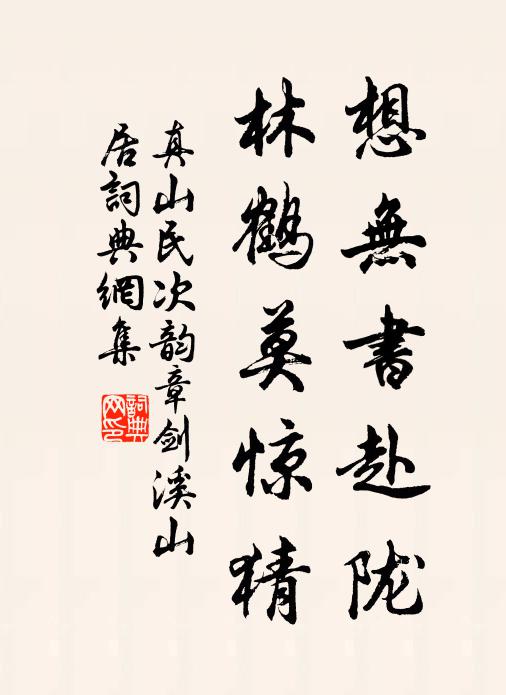 想無書赴陇
林鶴莫惊猜
真山民次韵章剑溪山
居詞典網集
詞典网印